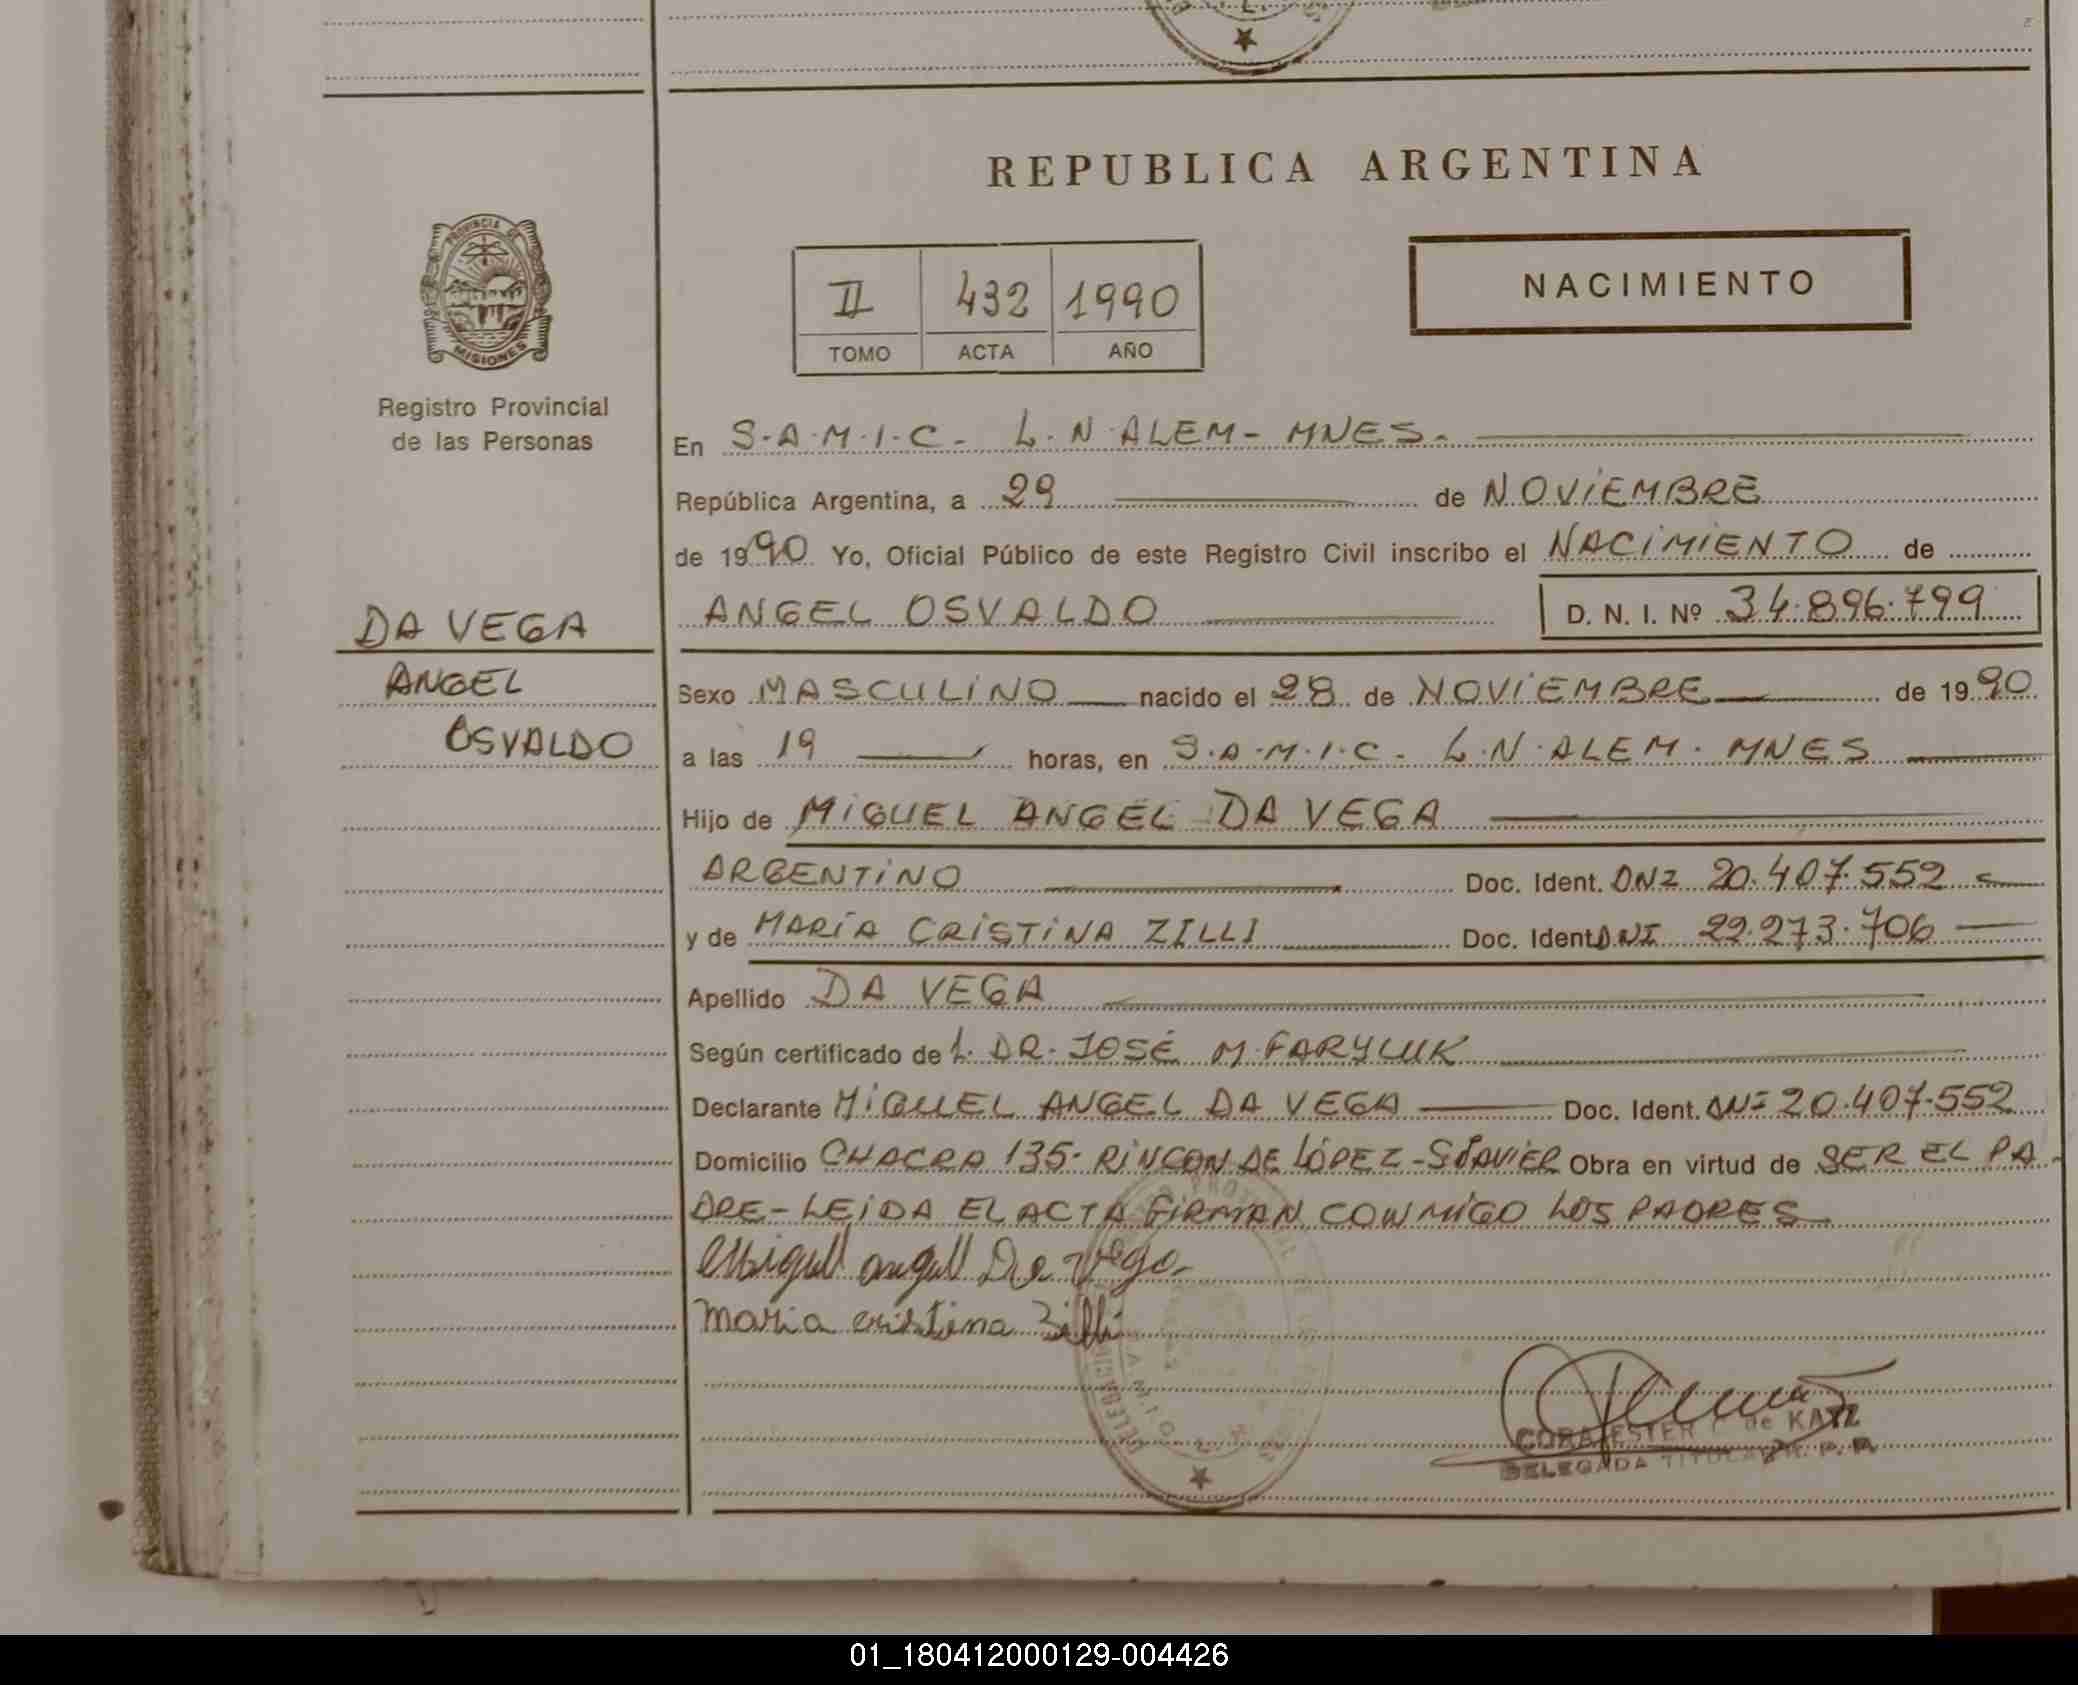 REPUBLICA ARGENTINA
PROVINCIA DE
MISIONES
Registro Provincial
de las Personas
II 432 1990
TOMO ACTA AÑO
NACIMIENTO
En S.A.M.I.C. L.N.ALEM-MNES.
República Argentina, a 29 de NOViEMBRE
de 1990 Yo, Oficial Público de este Registro Civil inscribo el NACiMiENTO de
ANGEL OSVALDO D. N. I. Nº 34.896.799
DA VEGA
ANGEL
OSVALDO
Sexo MASCULiNO nacido el 28 de NOViEMBRE de 1990
a las 19 horas, en S.A.M.I.C. L.N.ALEM. MNES
Hijo de MiGUEL ANGEL DA VEGA
ARGENTiNO Doc. Ident. DNI 20.407.552
y de MARíA CRiSTiNA ZILLI Doc. Ident. DNI 22.273.706
Apellido DA VEGA
Según certificado de L. DR. JOSÉ M. FARYLUK
Declarante MiGUEL ANGEL DA VEGA Doc. Ident. DNI 20.407.552
Domicilio CHACRA 135. RiNCON DE LÓPEZ-S.JAViER Obra en virtud de SER EL PA-
DRE-LEiDA EL ACTA FiRMAN CONMiGO LOS PADRES
Miguel angel Da Vega
maria cristina Zilli
CORA ESTER de KATZ
DELEGADA TITULAR R. P. P.
01_180412000129-004426